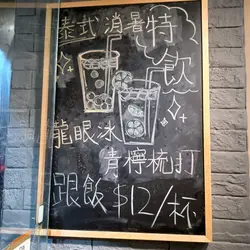 泰式消暑特飲
龍眼冰
青檸梳打
跟飯 $12/杯